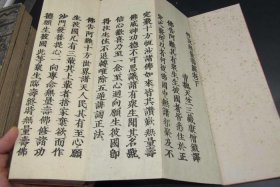 佛說無量壽經卷下
曹魏天竺三藏康僧鎧譯
佛告阿難其有衆生生彼國者皆悉住於正
定之聚所以者何彼佛國中無諸邪聚及不
定聚十方恒沙諸佛如來皆共讚歎無量壽
佛威神功德不可思議諸有衆生聞其名號
信心歡喜乃至一念至心迴向願生彼國即
得往生住不退轉唯除五逆誹謗正法
佛告阿難十方世界諸天人民其有至心願
生彼國凡有三輩其上輩者捨家棄欲而作
沙門發菩提心一向專念無量壽佛修諸功
德願生彼國此等衆生臨壽終時無量壽佛